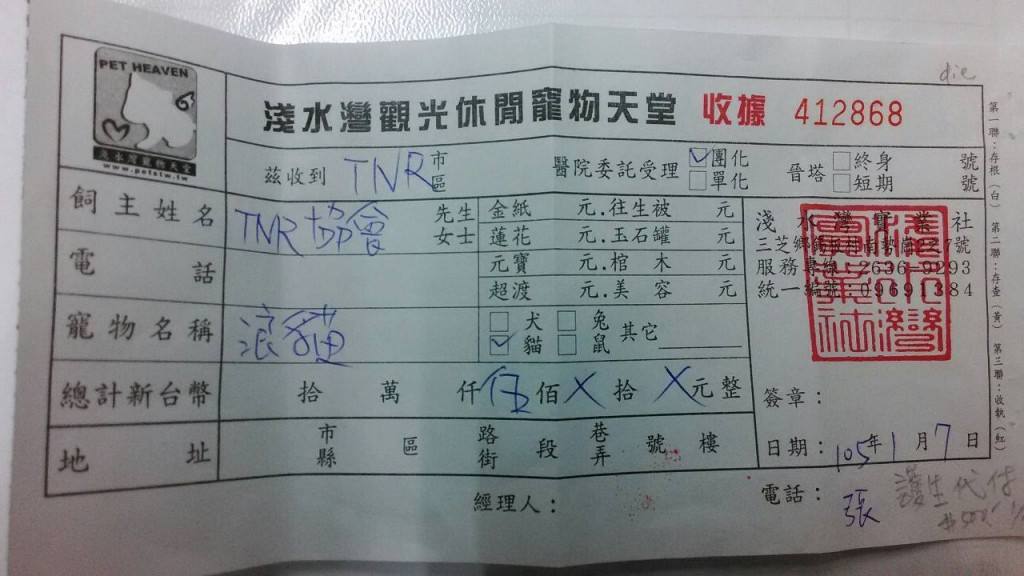 PET HEAVEN
淺水灣寵物天堂
www.petstw.tw
die
淺水灣觀光休閒寵物天堂 收據 412868
茲收到 TNR 市區
醫院委託受理 ☑團化 □單化
晉塔 □終身 號 □短期 號
飼主姓名 TNR協會 先生 女士
金紙 元.往生被 元
蓮花 元.玉石罐 元
元寶 元.棺木 元
超渡 元.美容 元
電話
淺水灣實業社
服務專線:2636-9293
統一編號:09691384
寵物名稱 浪貓
□犬 □兔 其它
☑貓 □鼠
總計新台幣 拾 萬 仟 伍 佰 X 拾 X 元整
簽章:
地址 市縣 區 路街 段 巷弄 號 樓
日期:105年1月7日
經理人:
電話:
張
護生代付
第一聯:存根(白) 第二聯:存查(黃) 第三聯:收執(紅)